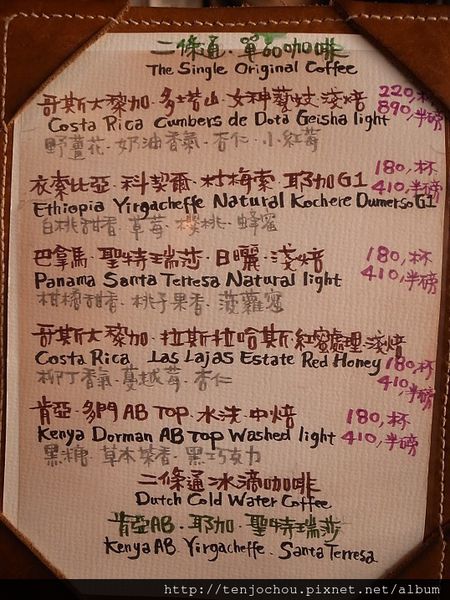 二條通·單品咖啡
The Single Original Coffee
哥斯大黎加·多塔山·女神藝妓·淺焙 220,/杯
Costa Rica Cumbers de Dota Geisha light 890,/半磅
野薑花·奶油香氣·杏仁·小紅莓
衣索比亞·科契爾·杜梅索 耶加G1 180,/杯
Ethiopia Yirgacheffe Natural Kochere DumersoG1 410,/半磅
白桃甜香·草莓·櫻桃·蜂蜜
巴拿馬·聖特瑞莎·日曬·淺焙 180,/杯
Panama Santa Terresa Natural light 410,/半磅
柑橘甜香·桃子果香·菠蘿蜜
哥斯大黎加·拉斯拉哈斯·紅蜜處理·淺焙
Costa Rica Las Lajas Estate Red Honey 180,/杯
柳丁香氣·蔓越莓·杏仁 410,/半磅
肯亞·多門AB TOP·水洗·中焙 180,/杯
Kenya Dorman AB TOP Washed light 410,/半磅
黑糖·草本茶香·黑巧克力
二條通冰滴咖啡
Dutch Cold Water Coffee
肯亞AB·耶加·聖特瑞莎
Kenya AB. Yirgacheffe. Santa Terresa
http://tenjochou.pixnet.net/album